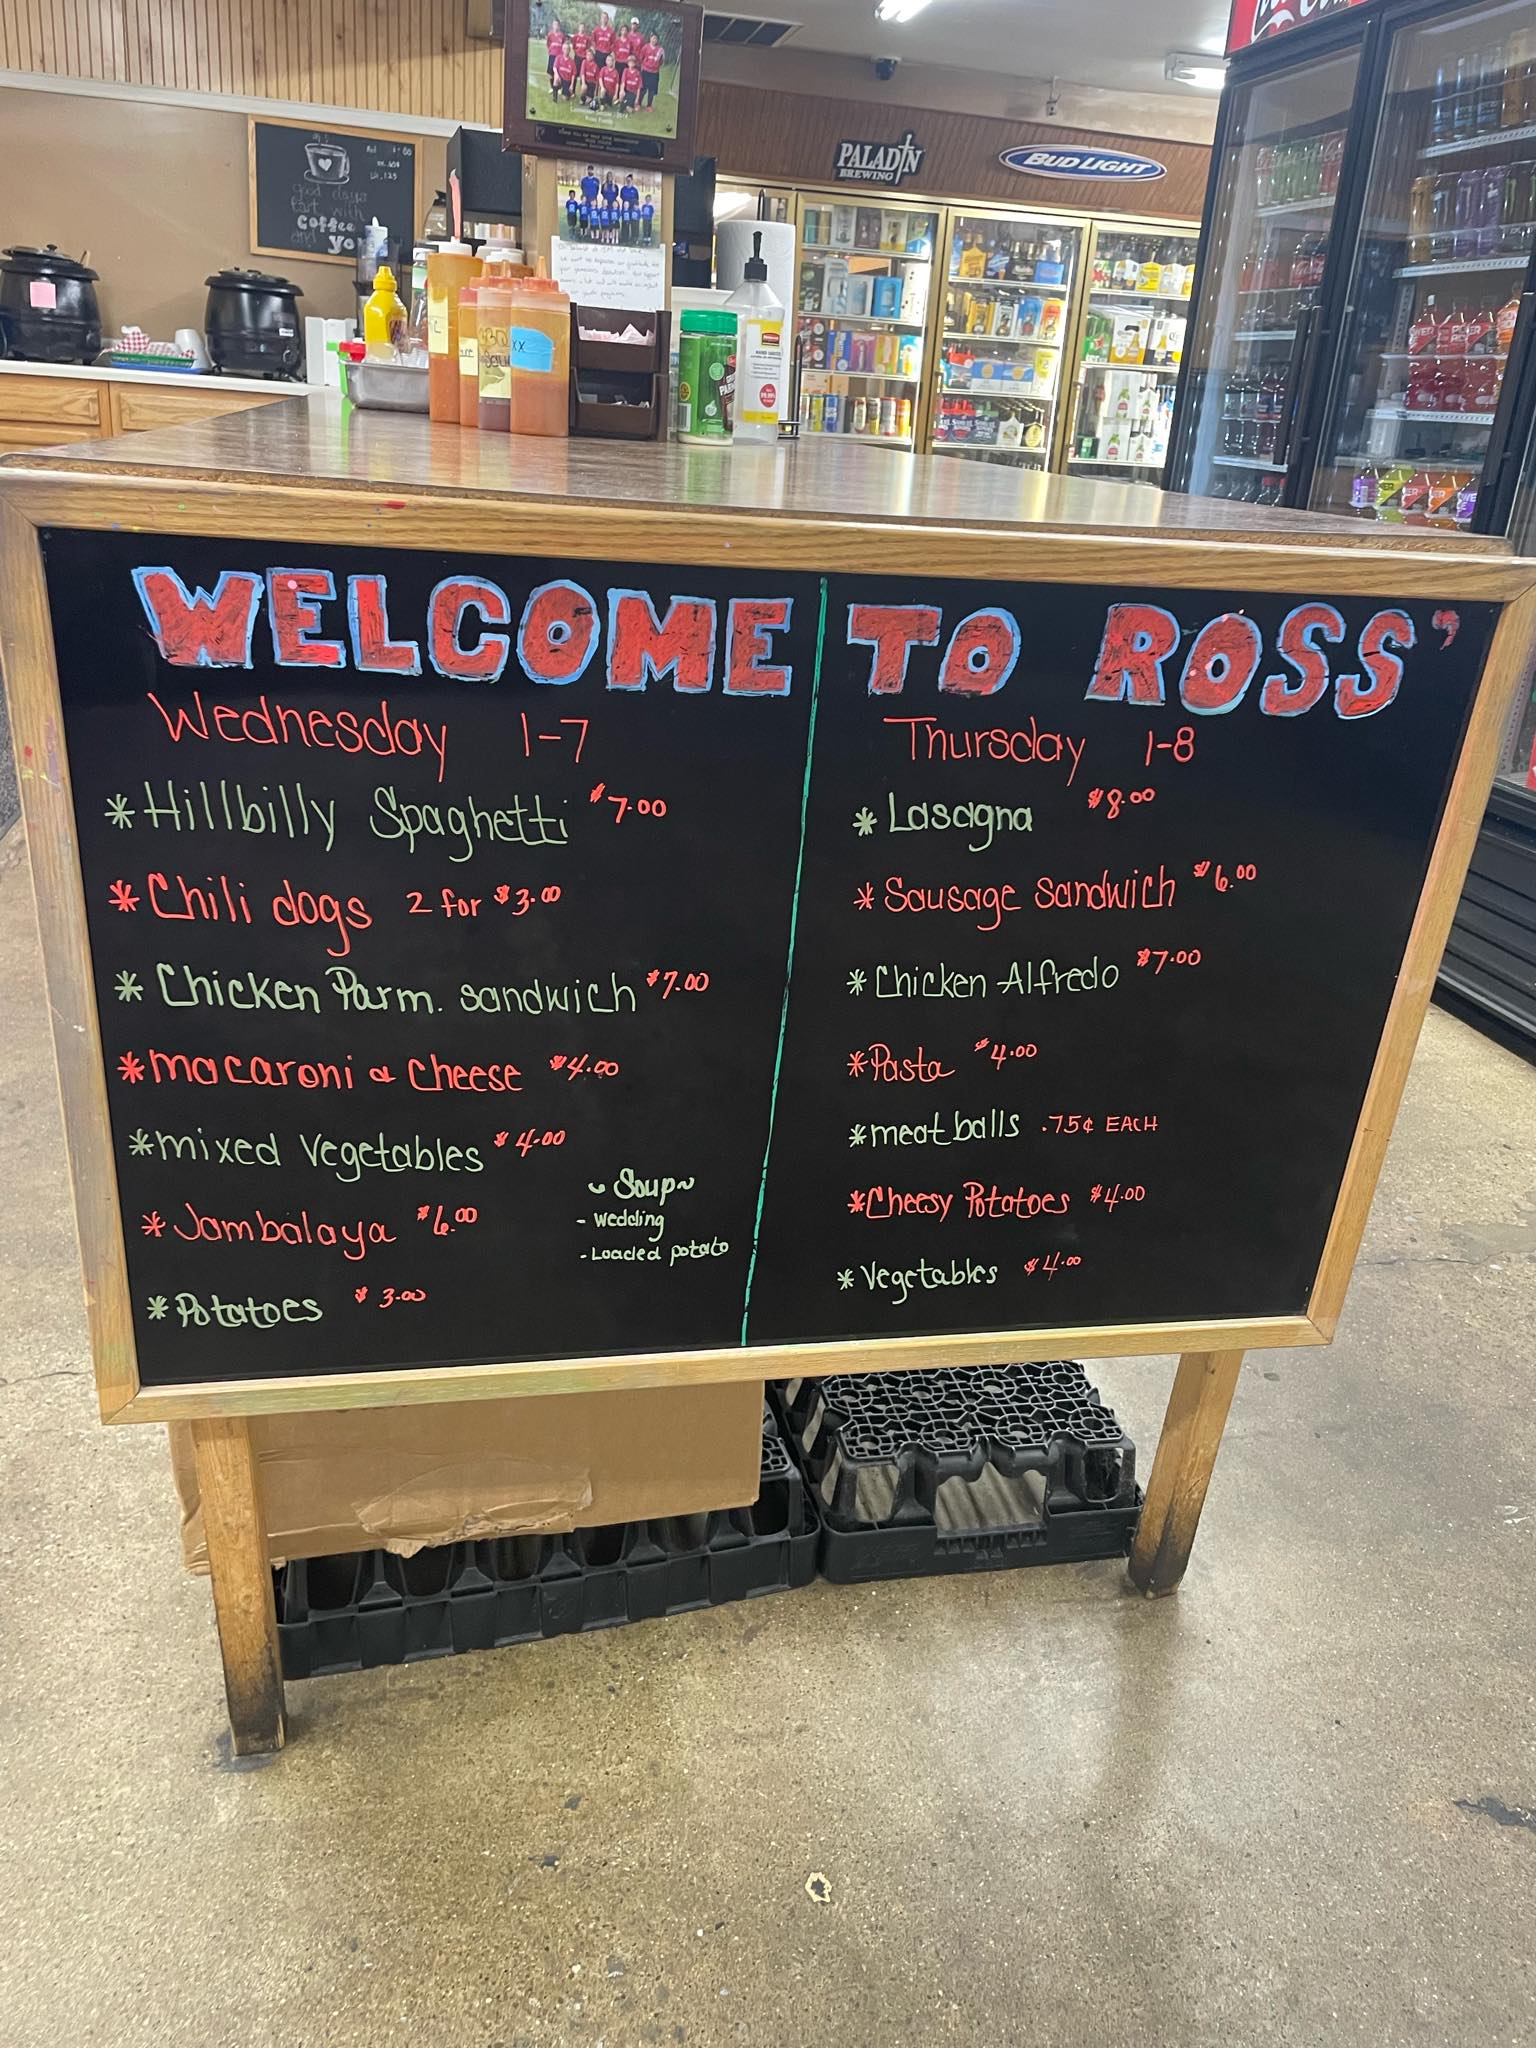 PALADIN
BREWING
BUD LIGHT
good days
start with
coffee
and you
WELCOME TO ROSS'
Wednesday 1-7
* Hillbilly Spaghetti $7.00
* Chili dogs 2 for $3.00
* Chicken Parm. sandwich $7.00
* macaroni & cheese $4.00
* mixed vegetables $4.00
* Jambalaya $6.00
* Potatoes $3.00
~ Soup ~
- Wedding
- Loaded potato
Thursday 1-8
* Lasagna $8.00
* Sausage sandwich $6.00
* Chicken Alfredo $7.00
* Pasta $4.00
* meatballs .75¢ EACH
* Cheesy Potatoes $4.00
* Vegetables $4.00